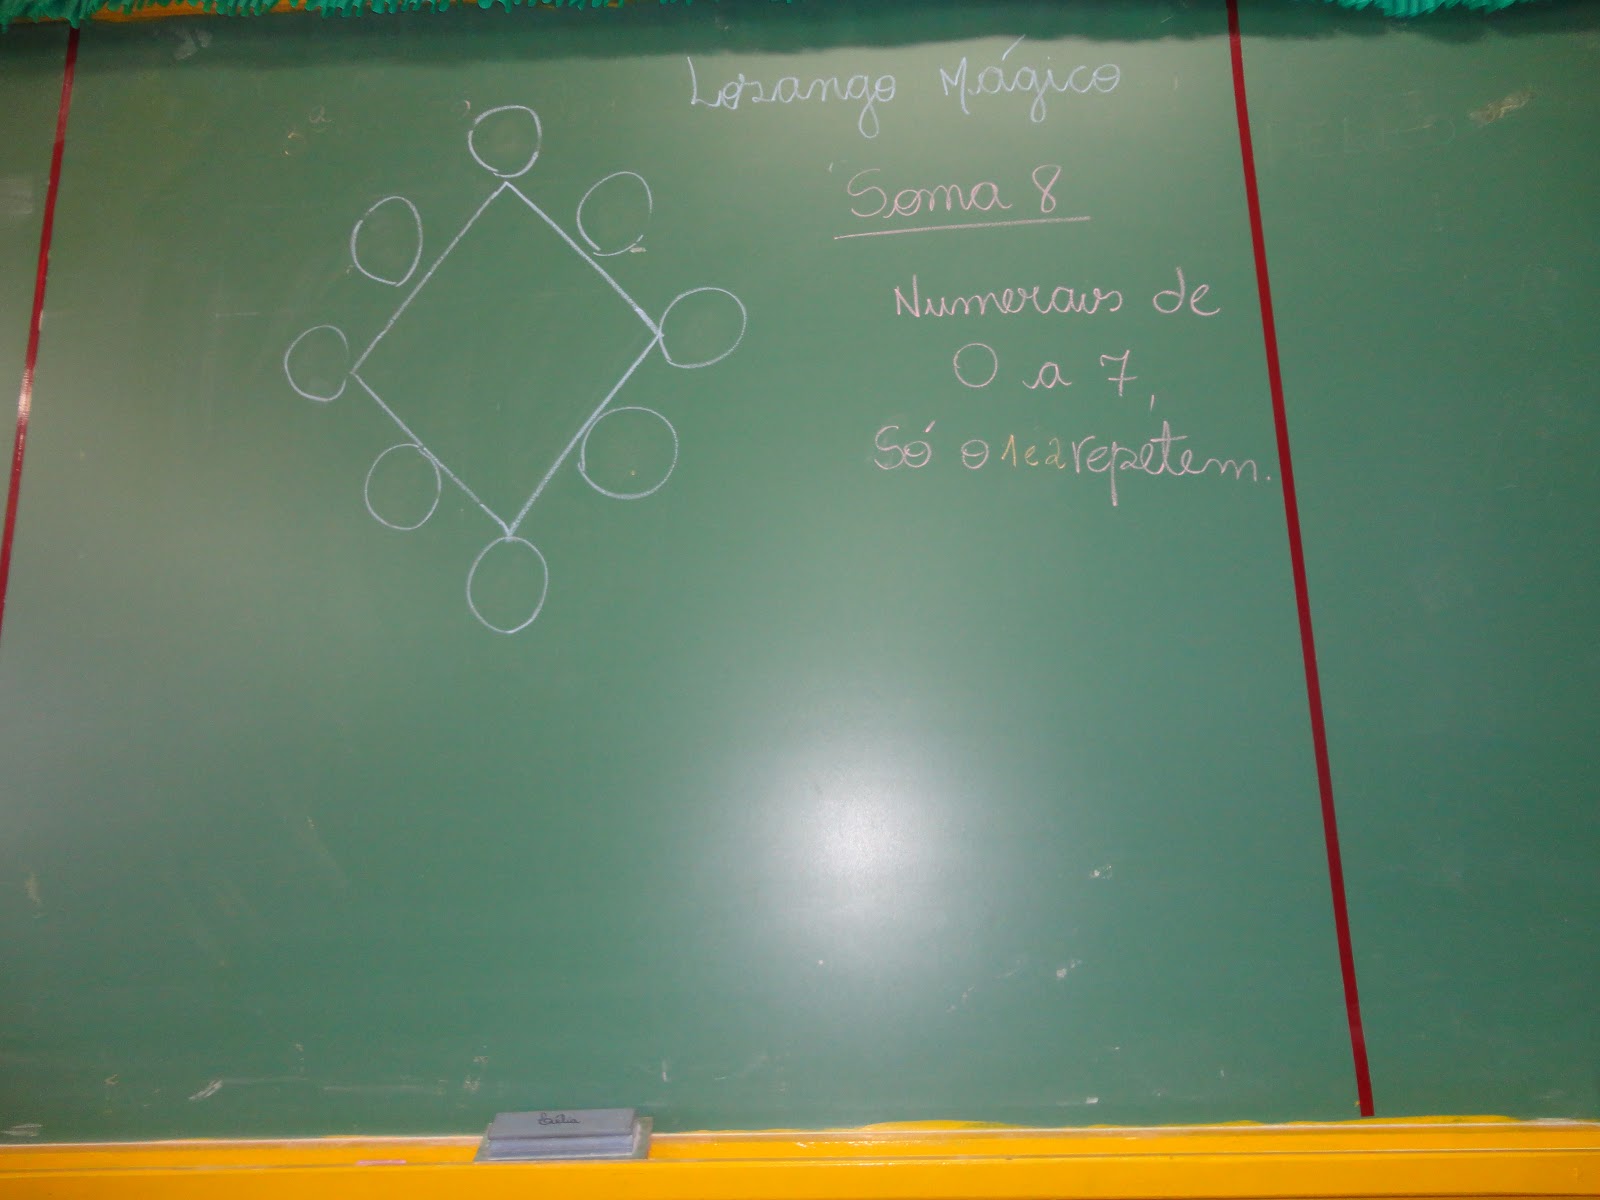 Lozango Mágico
Soma 8
Numerais de
0 a 7,
Só o 1 e 2 repetem.